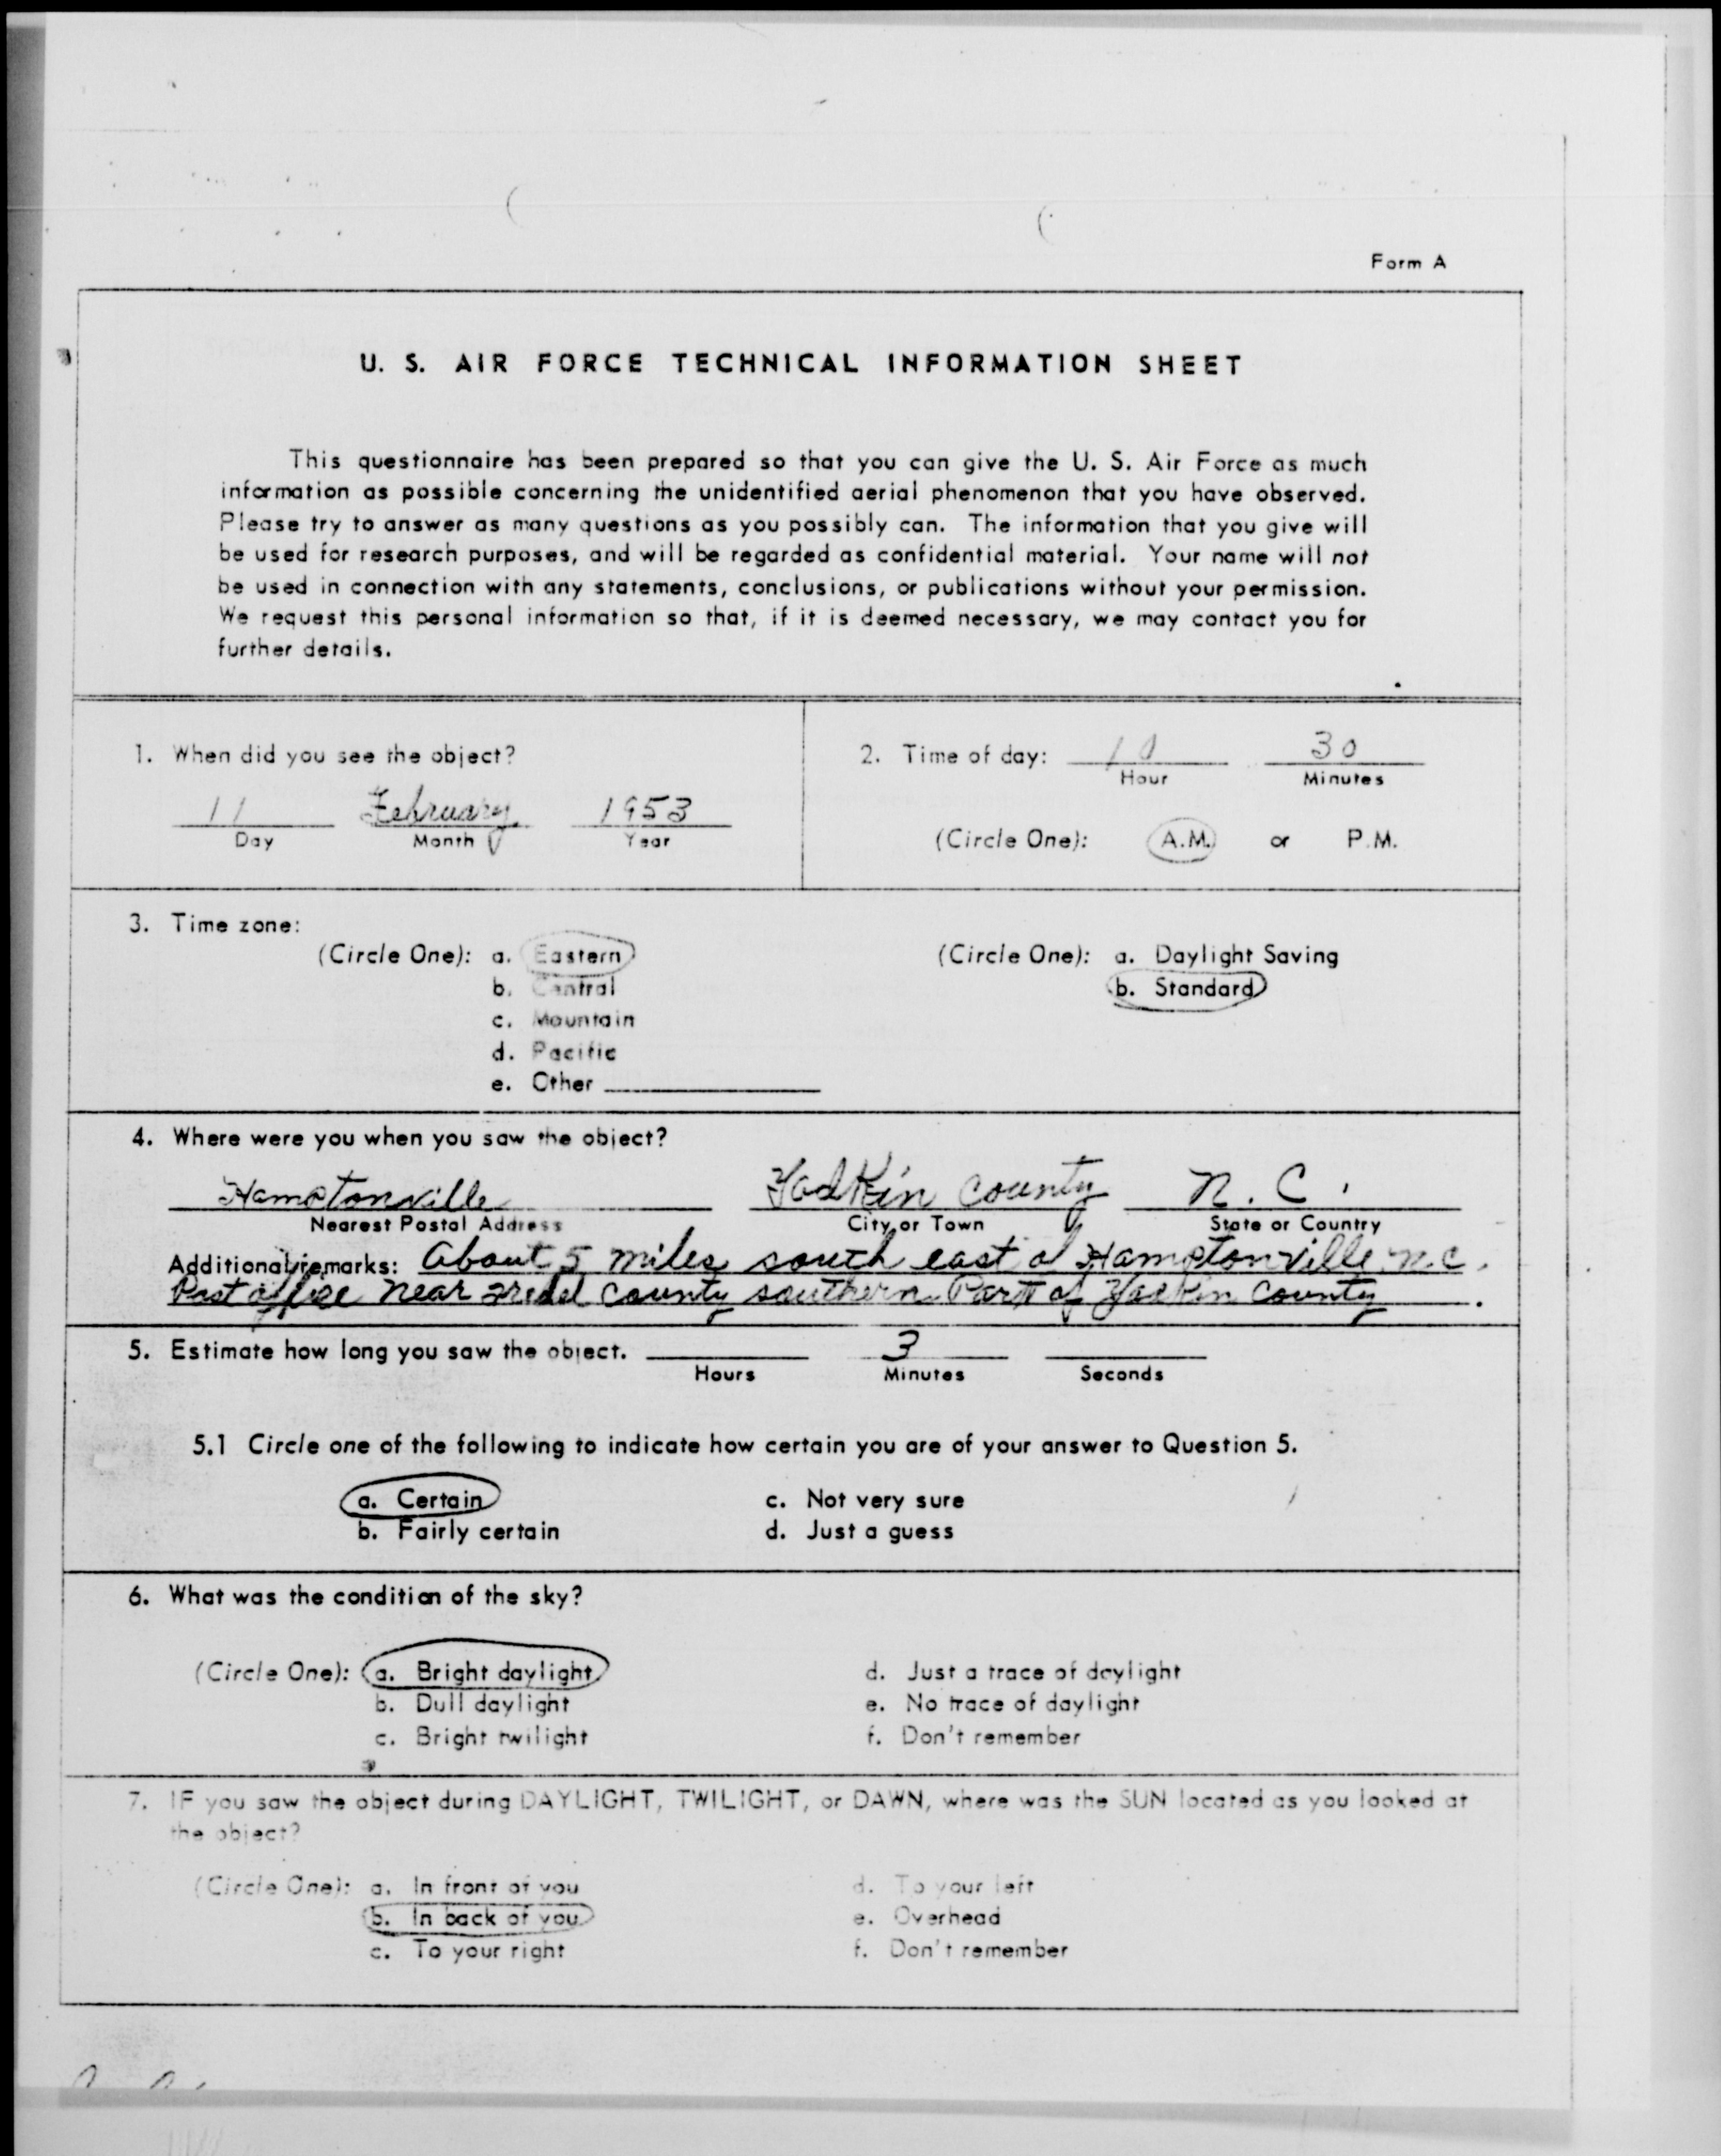 Form A
U. S. AIR FORCE TECHNICAL INFORMATION SHEET
This questionnaire has been prepared so that you can give the U. S. Air Force as much
information as possible concerning the unidentified aerial phenomenon that you have observed.
Please try to answer as many questions as you possibly can. The information that you give will
be used for research purposes, and will be regarded as confidential material. Your name will not
be used in connection with any statements, conclusions, or publications without your permission.
We request this personal information so that, if it is deemed necessary, we may contact you for
further details.
1. When did you see the object?
11 February 1953
Day Month Year
2. Time of day: 10 30
Hour Minutes
(Circle One): A.M. or P.M.
3. Time zone:
(Circle One): a. Eastern
b. Central
c. Mountain
d. Pacific
e. Other
(Circle One): a. Daylight Saving
b. Standard
4. Where were you when you saw the object?
Hamptonville Yadkin County N. C.
Nearest Postal Address City or Town State or Country
Additional remarks: About 5 miles south east of Hamptonville N.C.
Post office near Iredel County southern Part of Yadkin County.
5. Estimate how long you saw the object. 3
Hours Minutes Seconds
5.1 Circle one of the following to indicate how certain you are of your answer to Question 5.
a. Certain
b. Fairly certain
c. Not very sure
d. Just a guess
6. What was the condition of the sky?
(Circle One): a. Bright daylight
b. Dull daylight
c. Bright twilight
d. Just a trace of daylight
e. No trace of daylight
f. Don't remember
7. IF you saw the object during DAYLIGHT, TWILIGHT, or DAWN, where was the SUN located as you looked at
the object?
(Circle One): a. In front of you
b. In back of you
c. To your right
d. To your left
e. Overhead
f. Don't remember